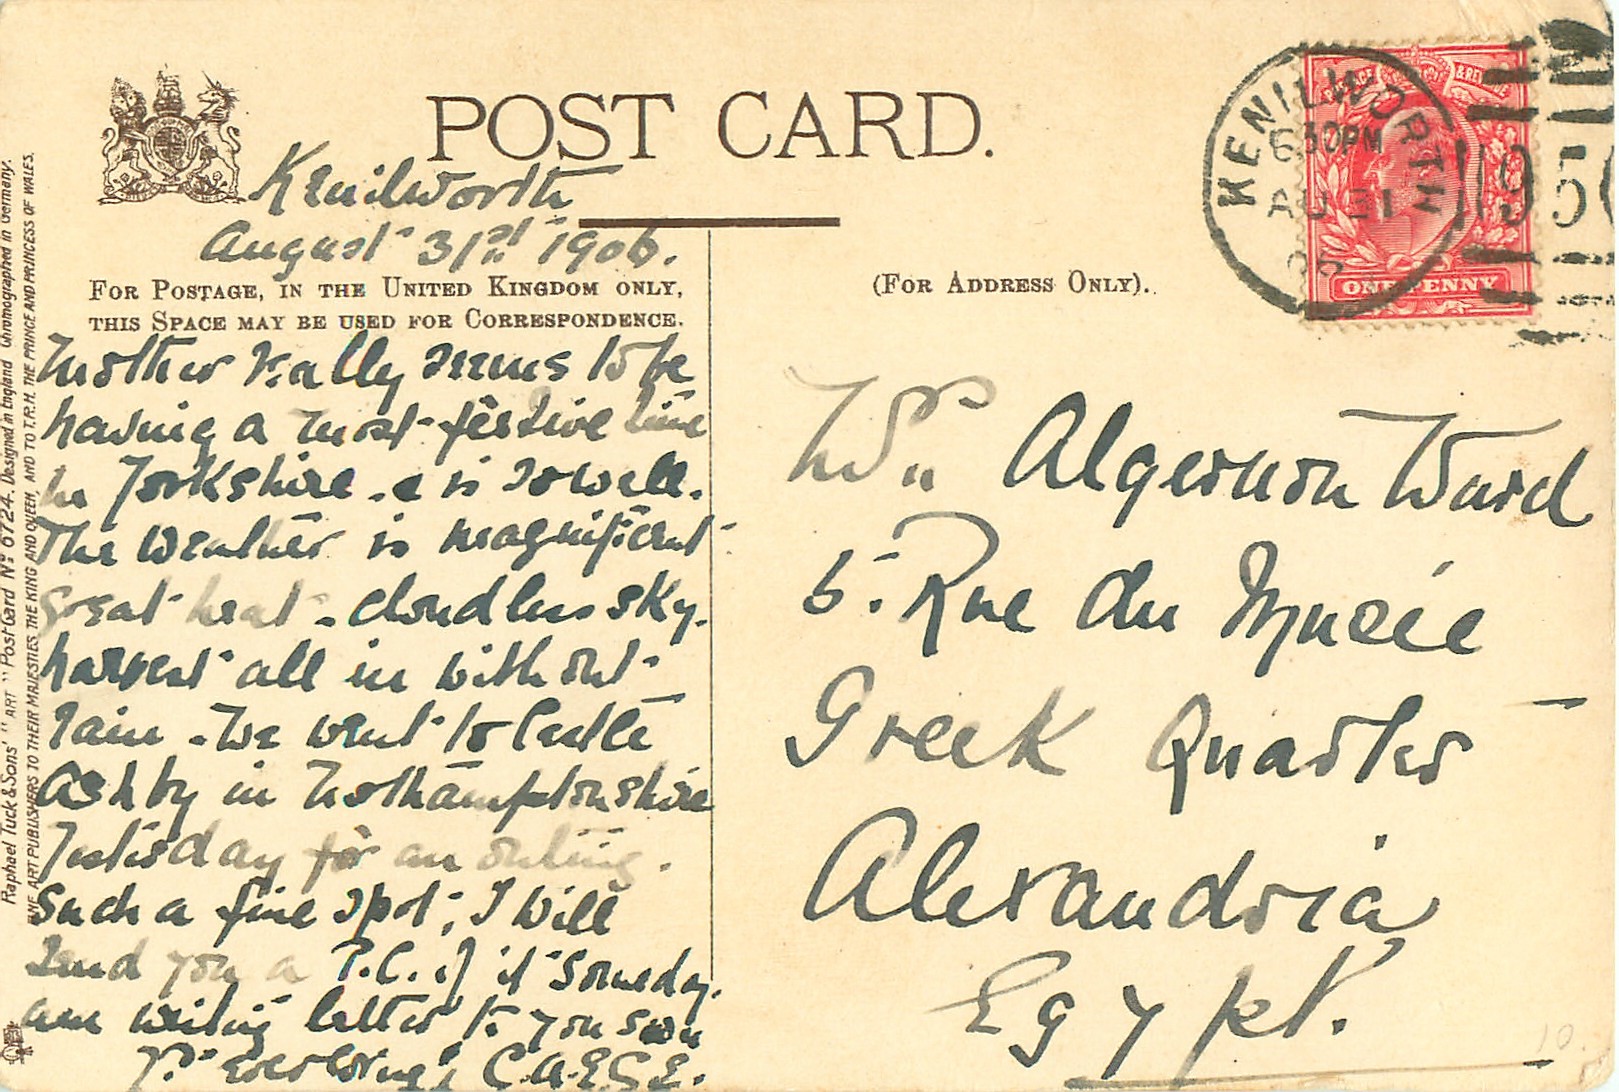 POST CARD.
Kenilworth
August 31st 1906.
FOR POSTAGE, IN THE UNITED KINGDOM ONLY,
THIS SPACE MAY BE USED FOR CORRESPONDENCE.
Mother really seems to be
having a most festive time
in Yorkshire - & is so well.
The weather is magnificent
great heat - cloudless sky.
harvest all in without
rain - We went to Castle
Ashby in Nothamptonshire
Yesterday for an outing.
Such a fine spot; I will
send you a P.C. of it someday.
am writing letter to you soon
Yrs Ever lovingly C.A.E.G.E.
(FOR ADDRESS ONLY).
Mrs Algernon Ward
5. Rue du Musée
Greek Quarter
Alexandria
Egypt.
KENILWORTH
6 30PM
AU 31
06
POSTAGE & REVENUE
ONE PENNY
Raphael Tuck & Sons' "ART" Post Card No. 6724. Designed in England Chromographed in Germany.
FINE ART PUBLISHERS TO THEIR MAJESTIES THE KING AND QUEEN, AND TO T.R.H. THE PRINCE AND PRINCESS OF WALES.
10.